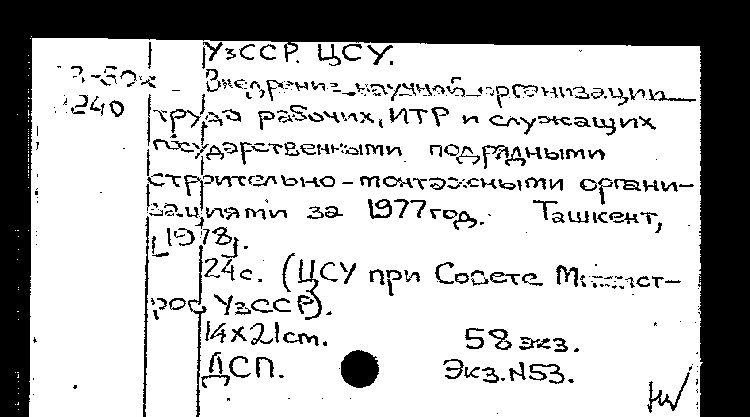 УзССР. ЦСУ.
Внедрение научной организации
240
труда рабочих, ИТР и служащих
государственными подрядными
строительно-монтажными органи-
зациями за 1977 год. Ташкент,
[1978].
24с. (ЦСУ при Совете Министров
ров УзССР).
14х21cm. 58 экз.
ДСП. Экз.N53.